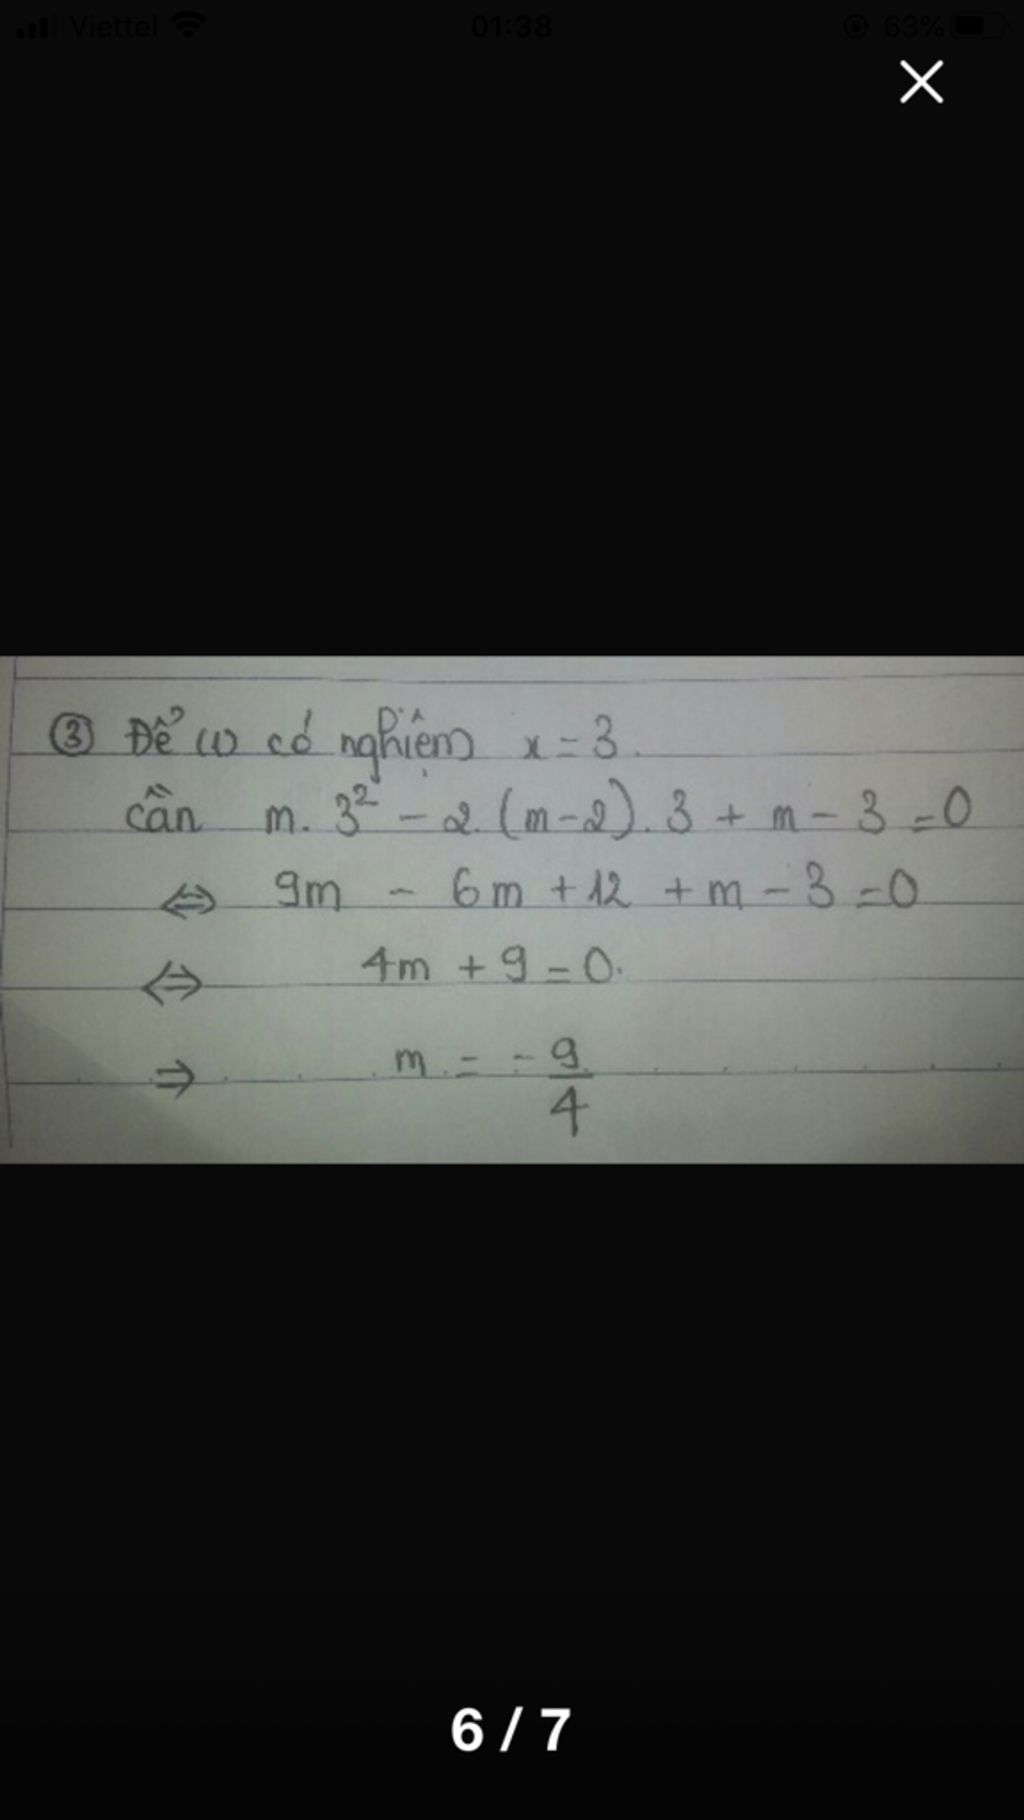 Viettel 01:38 63%
③ Để (1) có nghiệm x = 3.
cần m. 3² - 2. (m-2). 3 + m - 3 = 0
⇔ 9m - 6m + 12 + m - 3 = 0
⇔ 4m + 9 = 0.
⇒ m = - 9/4
6 / 7